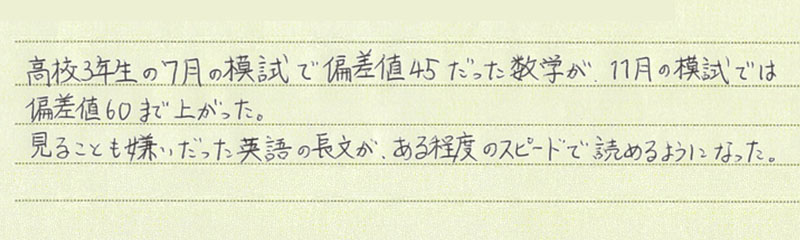 高校3年生の7月の模試で偏差値45だった数学が、11月の模試では
偏差値60まで上がった。
見ることも嫌いだった英語の長文が、ある程度のスピードで読めるようになった。